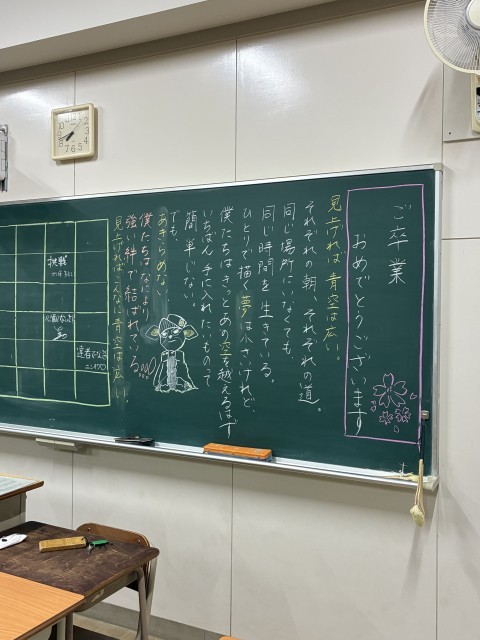 ご卒業
おめでとうございます
見上げれば青空は広い。
それぞれの朝、それぞれの道。
同じ場所にいなくても
同じ時間を生きている。
ひとりで描く夢は小さいけれど、
僕たちはきっとあの空を越えるはず
いちばん手に入れたいものって
簡単じゃない、
でも、
あきらめない。
僕たちはなにより
強い絆で結ばれている。
見上げればこんなに青空は広い。
挑戦